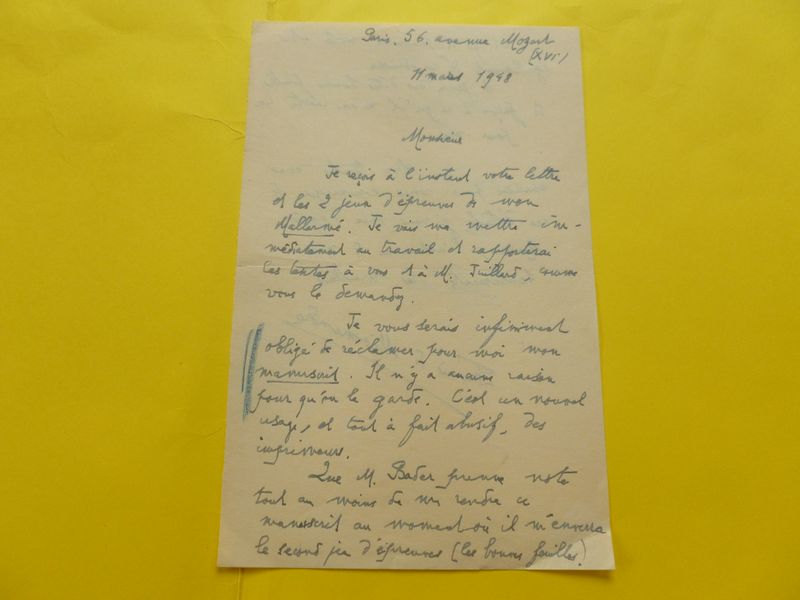 Paris. 56. avenue Mozart
(XVI)
11 mars 1948
Monsieur
Je reçois à l'instant votre lettre
et les 2 jeux d'épreuves de mon
Mallarmé. Je vais me mettre im-
médiatement au travail et rapporterai
les textes à vous et à M. Juillard, comme
vous le demandez.
Je vous serais infiniment
obligé de réclamer pour moi mon
manuscrit. Il n'y a aucune raison
pour qu'on le garde. C'est un nouvel
usage, et tout à fait abusif, des
imprimeurs.
Que M. Bader prenne note
tout au moins de me rendre ce
manuscrit au moment où il m'enverra
le second jeu d'épreuves (les bonnes feuilles.)